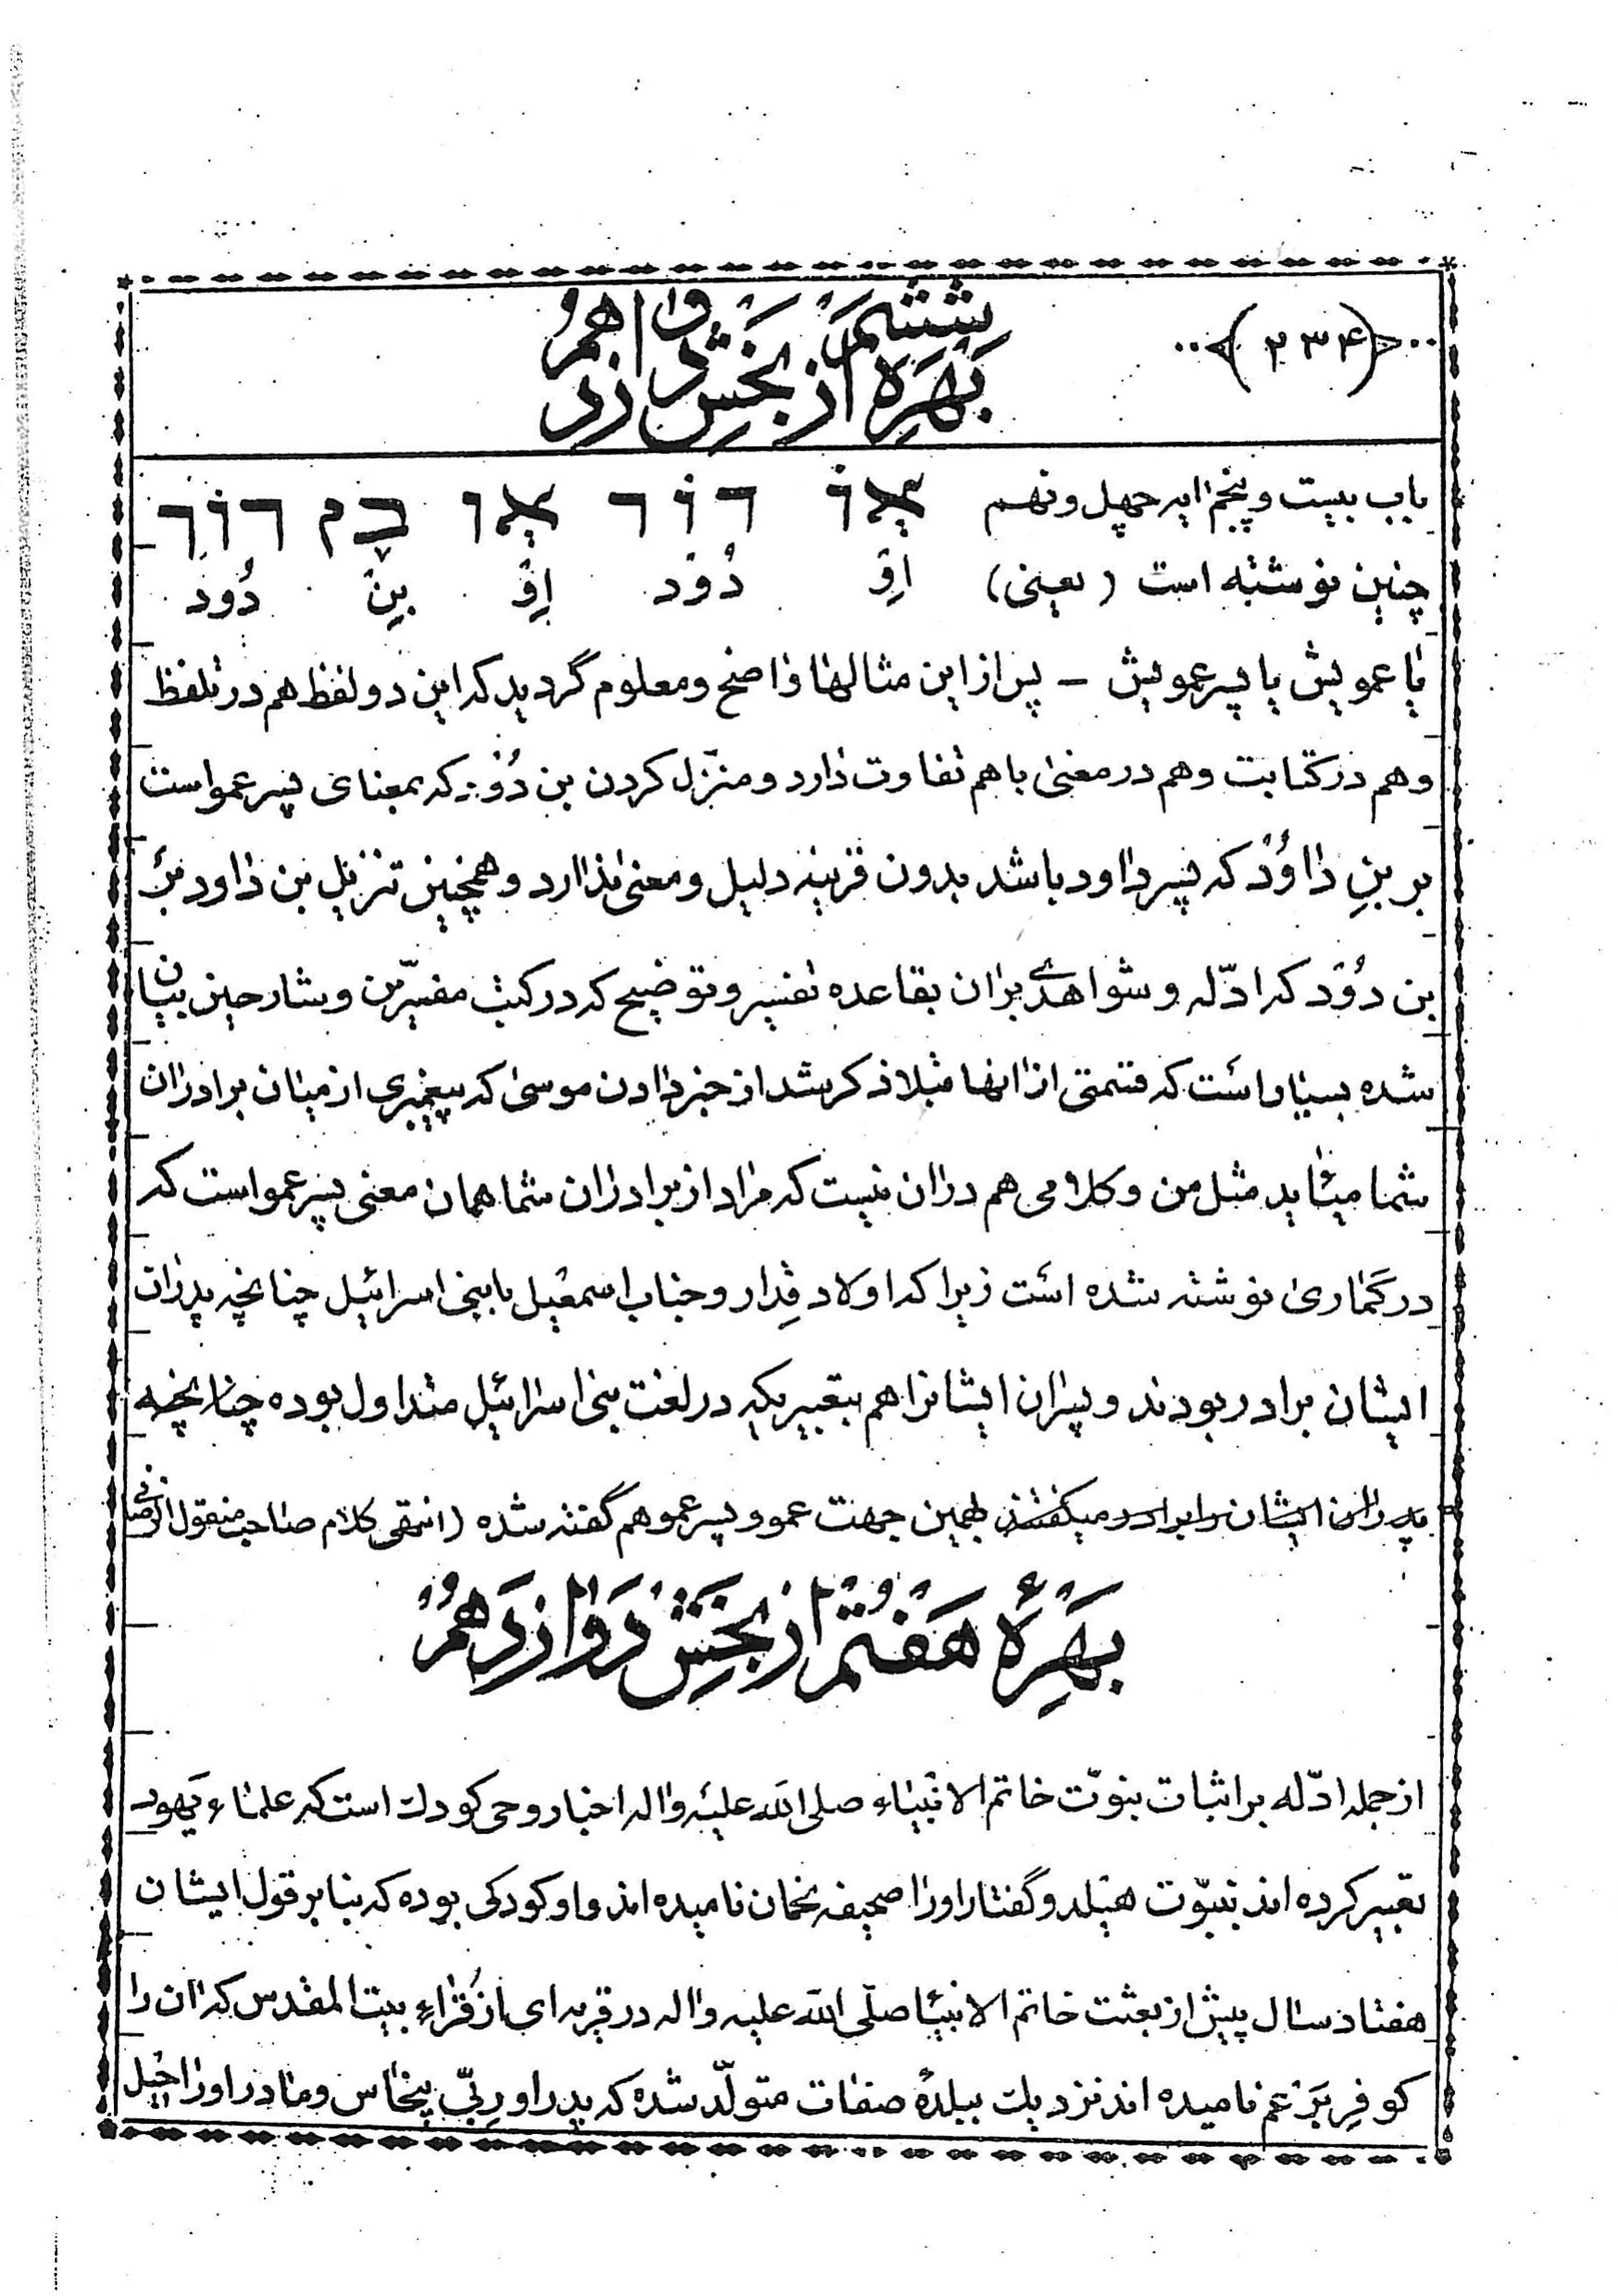 ﴿۲۳۴﴾
بهره ششم از بخش دوازدهم
باب بیست و پنجم ایه چهل و نهم או דוד או בן דוד
چنین نوشته است (یعنی) اِوْ دُوْد اِوْ بِنِ دُوْد
یا عمویش یا پسر عمویش – پس از این مثالها واضح و معلوم گردید که این دو لفظ هم در تلفظ
و هم در کتابت و هم در معنی با هم تفاوت دارد و منزّل کردن بن دُوْد که بمعنای پسر عمو است
بر بنِ داوُد که پسر داود باشد بدون قرینه دلیل و معنی ندارد و همچنین تنزیل بن داود بر
بن دُوْد که ادّله و شواهدی بران بقاعده تفسیر و توضیح که در کتب مفسّرین و شارحین بیان
شده بسیار است که قسمتی از انها قبلا ذکر شد از خبر دادن موسی که پیغمبری از میان برادران
شما میاید مثل من و کلامی هم دران نیست که مراد از برادران شما همان معنی پسر عمو است که
در گماری نوشته شده است زیرا که اولاد قِدار و جناب اسمعیل با بنی اسرائیل چنانچه پدران
ایشان برادر بودند و پسران ایشانرا هم بتعبیریکه در لغت بنی اسرائیل متداول بوده چنانچه
پدران ایشان را برادر میگفتند بهمین جهت عمو و پسر عمو هم گفته شده (انتهی کلام صاحب منقول
بَهرهٔ هَفتُم از بَخشِ دَوازدَهُم
از جمله ادّله بر اثبات نبوّت خاتم الانبیاء صلی الله علیه واله اخبار وحی کودك است که علماء یَهود
تعبیر کرده اند بنبوّت هیلد و گفتار اورا صحیفه نحمان نامیده اند و او کودکی بوده که بنا بر قول ایشان
هفتاد سال پیش از بعثت خاتم الانبیا صلّی الله علیه واله در قریه ای از قُراءِ بیت المقدس که ان را
کوفِر بَرْعِم نامیده اند نزدیك ببلدهٔ صفات متولّد شده که پدر او رِبّی پنحاس و مادر اورا